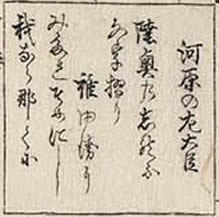 河原の左大臣
陸奥のしのふ
もち摺り
誰ゆゑに
みたれそめにし
我ならなくに